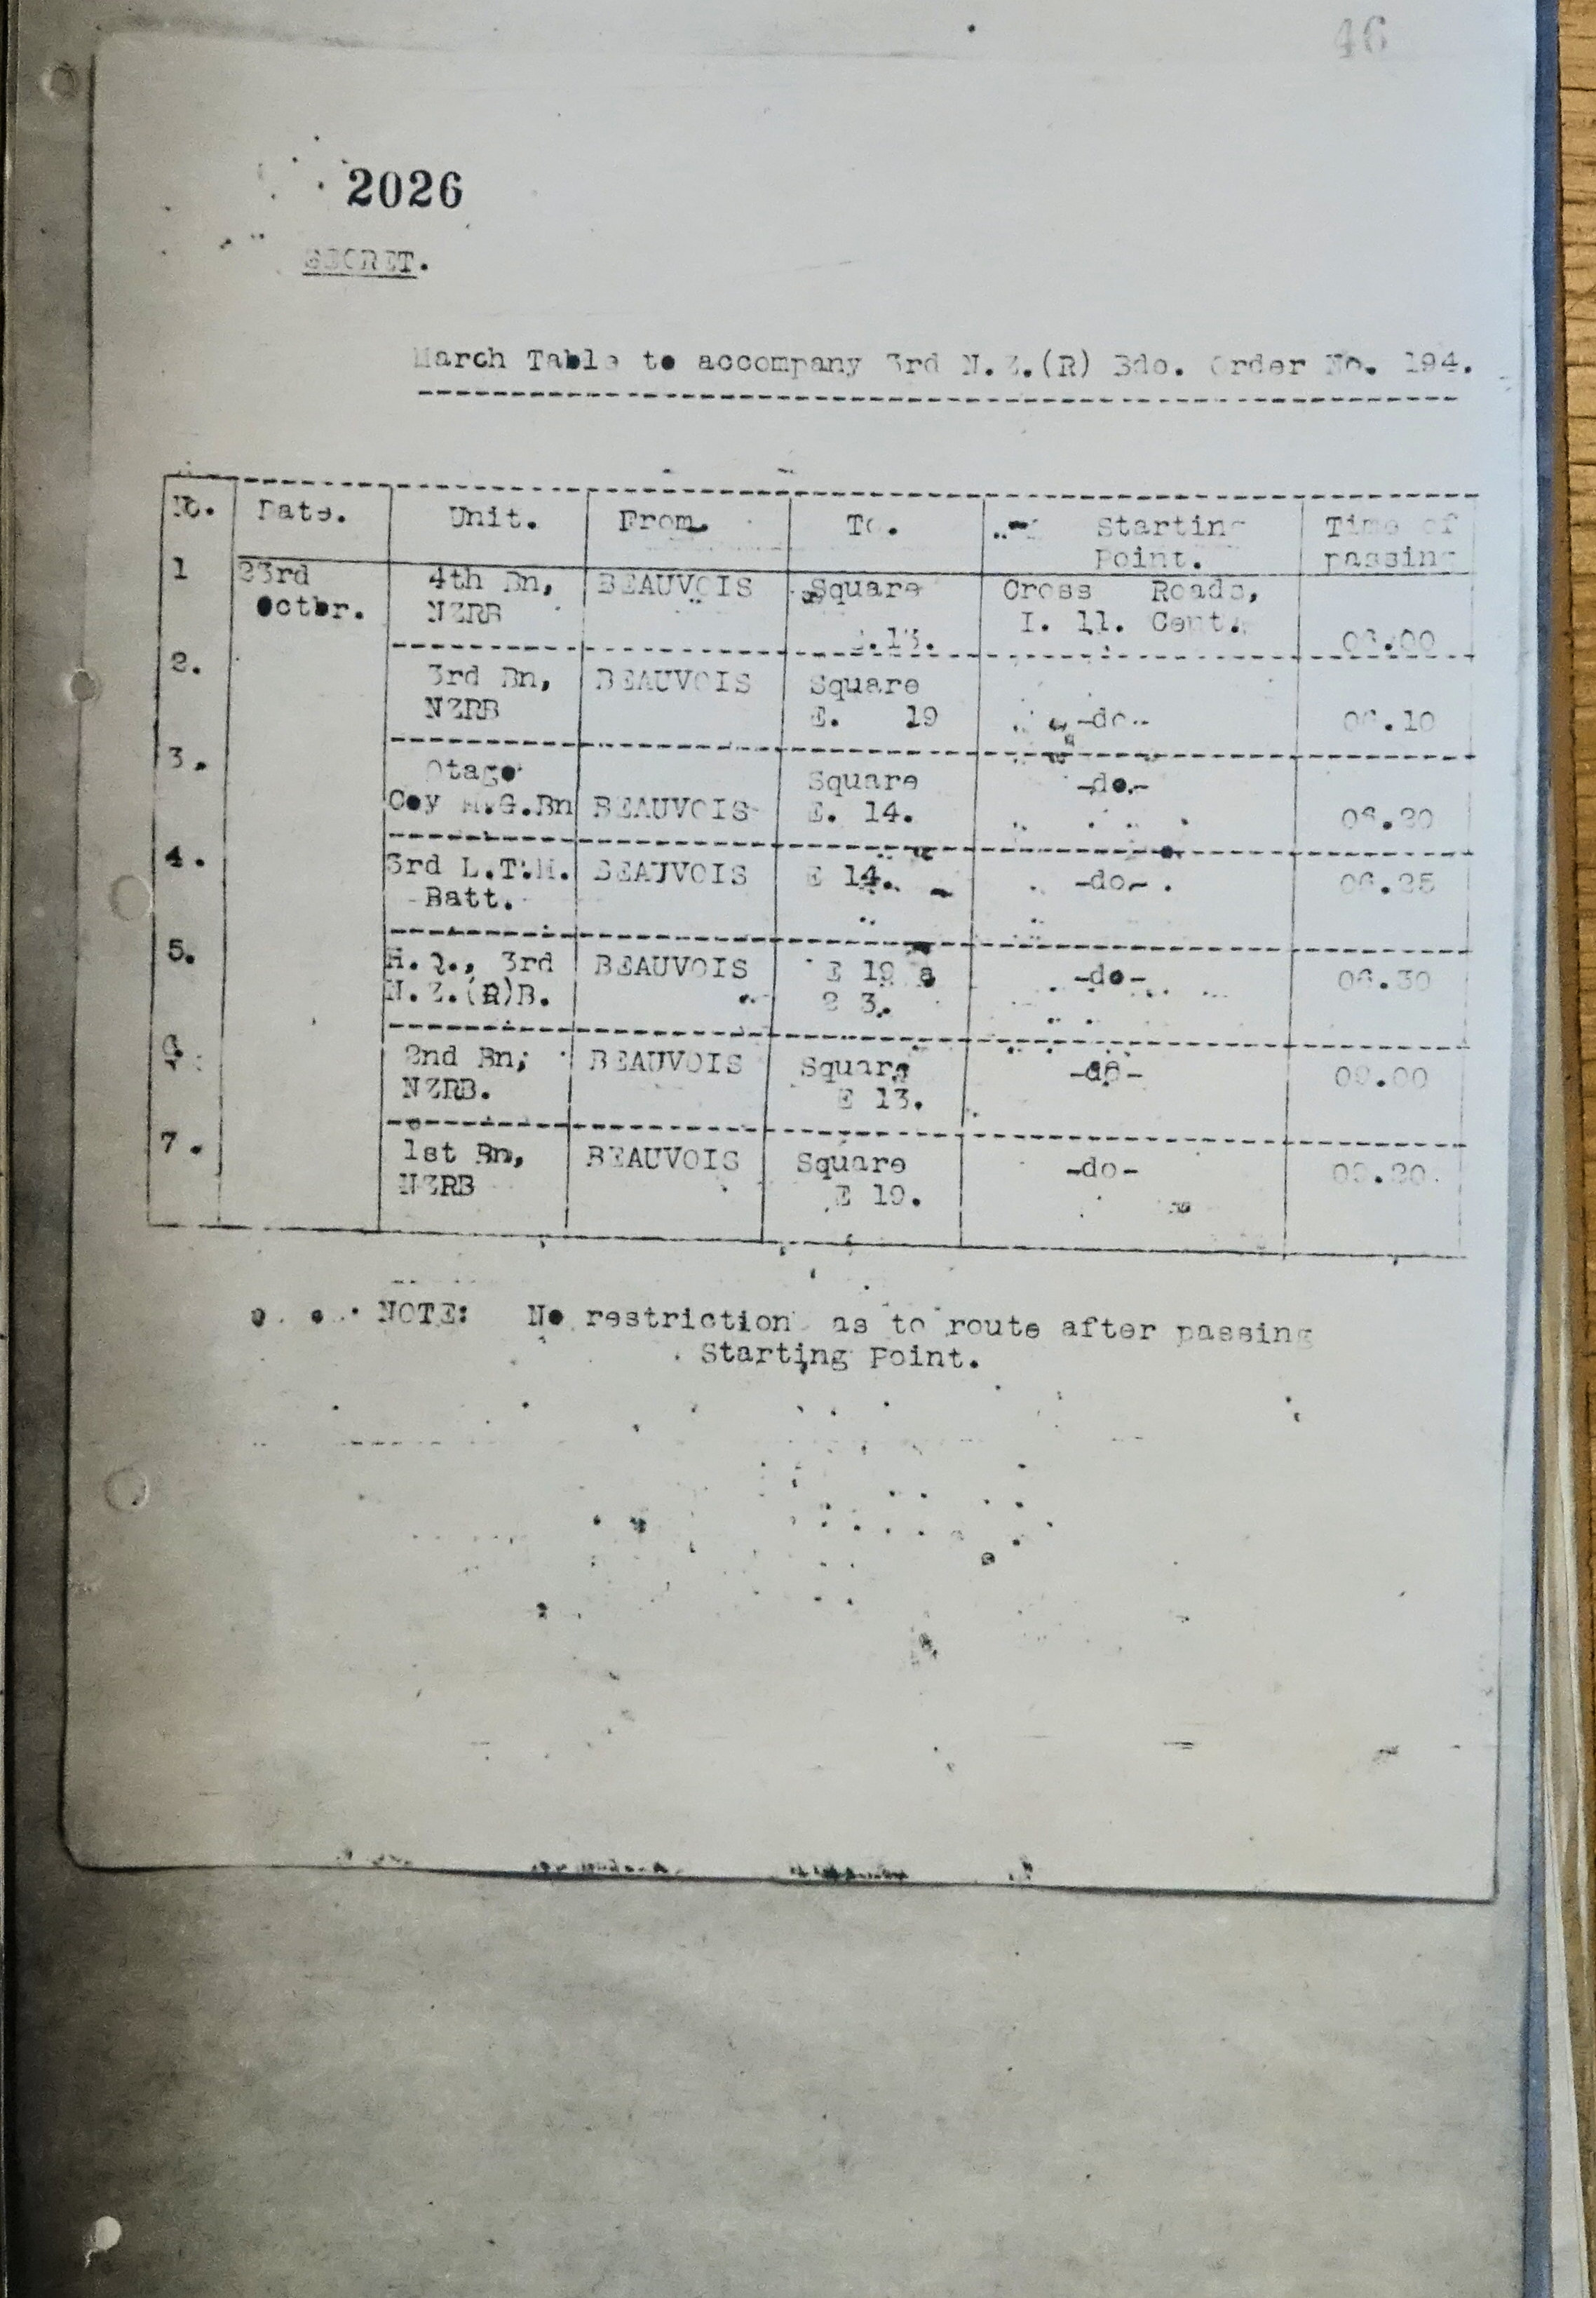 46
2026
SECRET.
March Table to accompany 3rd N.Z.(R) Bde. Order No. 194.
No. Date. Unit. From. To. Starting Time of
Point. passing
1 23rd 4th Bn, BEAUVOIS Square Cross Roads,
Octbr. NZRB I. 11. Cent.
.13. 06.00
2. 3rd Bn, BEAUVOIS Square
NZRB E. 19 -do- 06.10
3. Otago Square -do-
Coy M.G.Bn BEAUVOIS E. 14. 06.20
4. 3rd L.T.M. BEAUVOIS E 14. -do- 06.25
Batt.
5. H.Q., 3rd BEAUVOIS E 19 a -do- 06.30
N.Z.(R)B. 2 3.
6. 2nd Bn, BEAUVOIS Square -do- 09.00
NZRB. E 13.
7. 1st Bn, BEAUVOIS Square -do- 09.20.
NZRB E 19.
NOTE: No restriction as to route after passing
Starting Point.